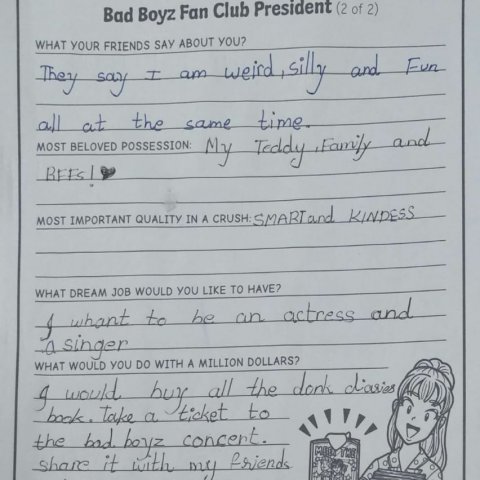 Bad Boyz Fan Club President (2 of 2)
WHAT YOUR FRIENDS SAY ABOUT YOU?
They say I am weird, silly and Fun
all at the same time.
MOST BELOVED POSSESSION: My Teddy, Family and
BFFs! ♥
MOST IMPORTANT QUALITY IN A CRUSH: SMART and KINDESS
WHAT DREAM JOB WOULD YOU LIKE TO HAVE?
I whant to be an actress and
a singer
WHAT WOULD YOU DO WITH A MILLION DOLLARS?
I would buy all the dork diaries
book. Take a ticket to
the bad boyz concert.
share it with my friends